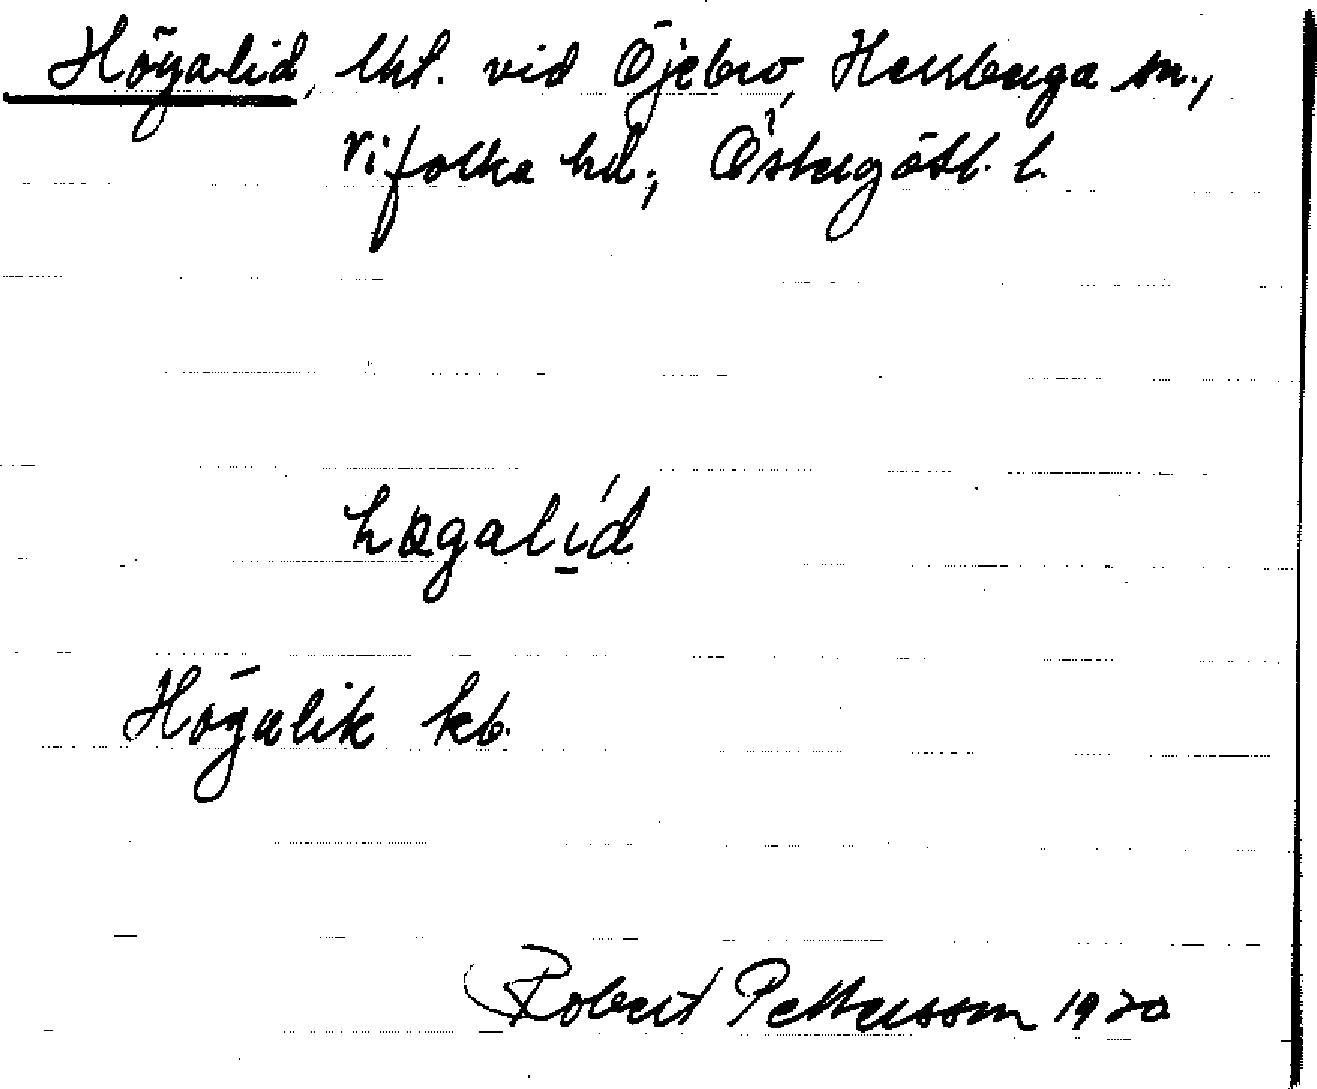 Högalid, lht. vid Öjebro, Herrberga sn.,
Vifolka hd., Östergötl. l.
högalid
Högalik kb.
Robert Pettersson 1920